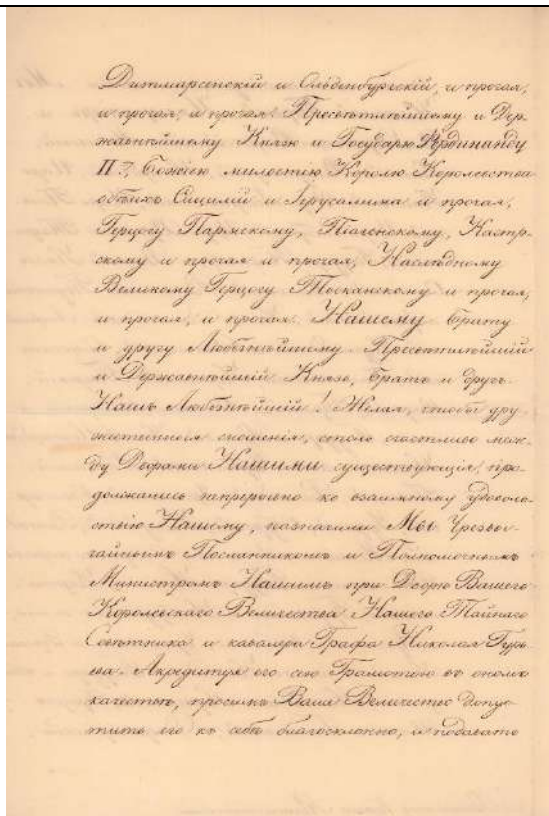 Дитмарсенскій и Ольденбургскій, и прочая,
и прочая, и прочая. Пресвѣтлѣйшему и Дер-
жавнѣйшему Князю и Государю Фердинанду
II му, Божіею милостію Королю Королевства
обѣихъ Сицилій и Іерусалима и прочая,
Герцогу Пармскому, Піаченскому, Кастр-
скому и прочая и прочая, Наслѣдному
Великому Герцогу Тосканскому и прочая,
и прочая, и прочая. Нашему брату
и другу Любезнѣйшему. Пресвѣтлѣйшій
и Державнѣйшій Князь, братъ и другъ
Нашъ Любезнѣйшій! Желая, чтобы дру-
жественныя сношенія, столь счастливо меж-
ду Дворами Нашими существующія, про-
должались непрерывно ко взаимному удоволь-
ствію Нашему, назначили Мы Чрезвы-
чайнымъ Посланникомъ и Полномочнымъ
Министромъ Нашимъ при Дворѣ Вашего
Королевскаго Величества Нашего Тайнаго
Совѣтника и кавалера Графа Николая Гурь-
ева. Акредитуя его сею Грамотою въ ономъ
качествѣ, просимъ Ваше Величество допу-
стить его къ себѣ благосклонно, и подавать